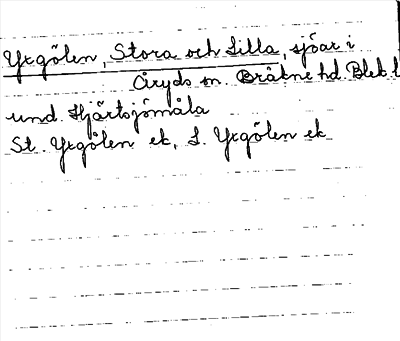 Yxgölen, Stora och Lilla, sjöar i
Åryds sn. Bräkne hd. Blek. l
und. Hjärtsjömåla
St. Yxgölen ek, L. Yxgölen ek